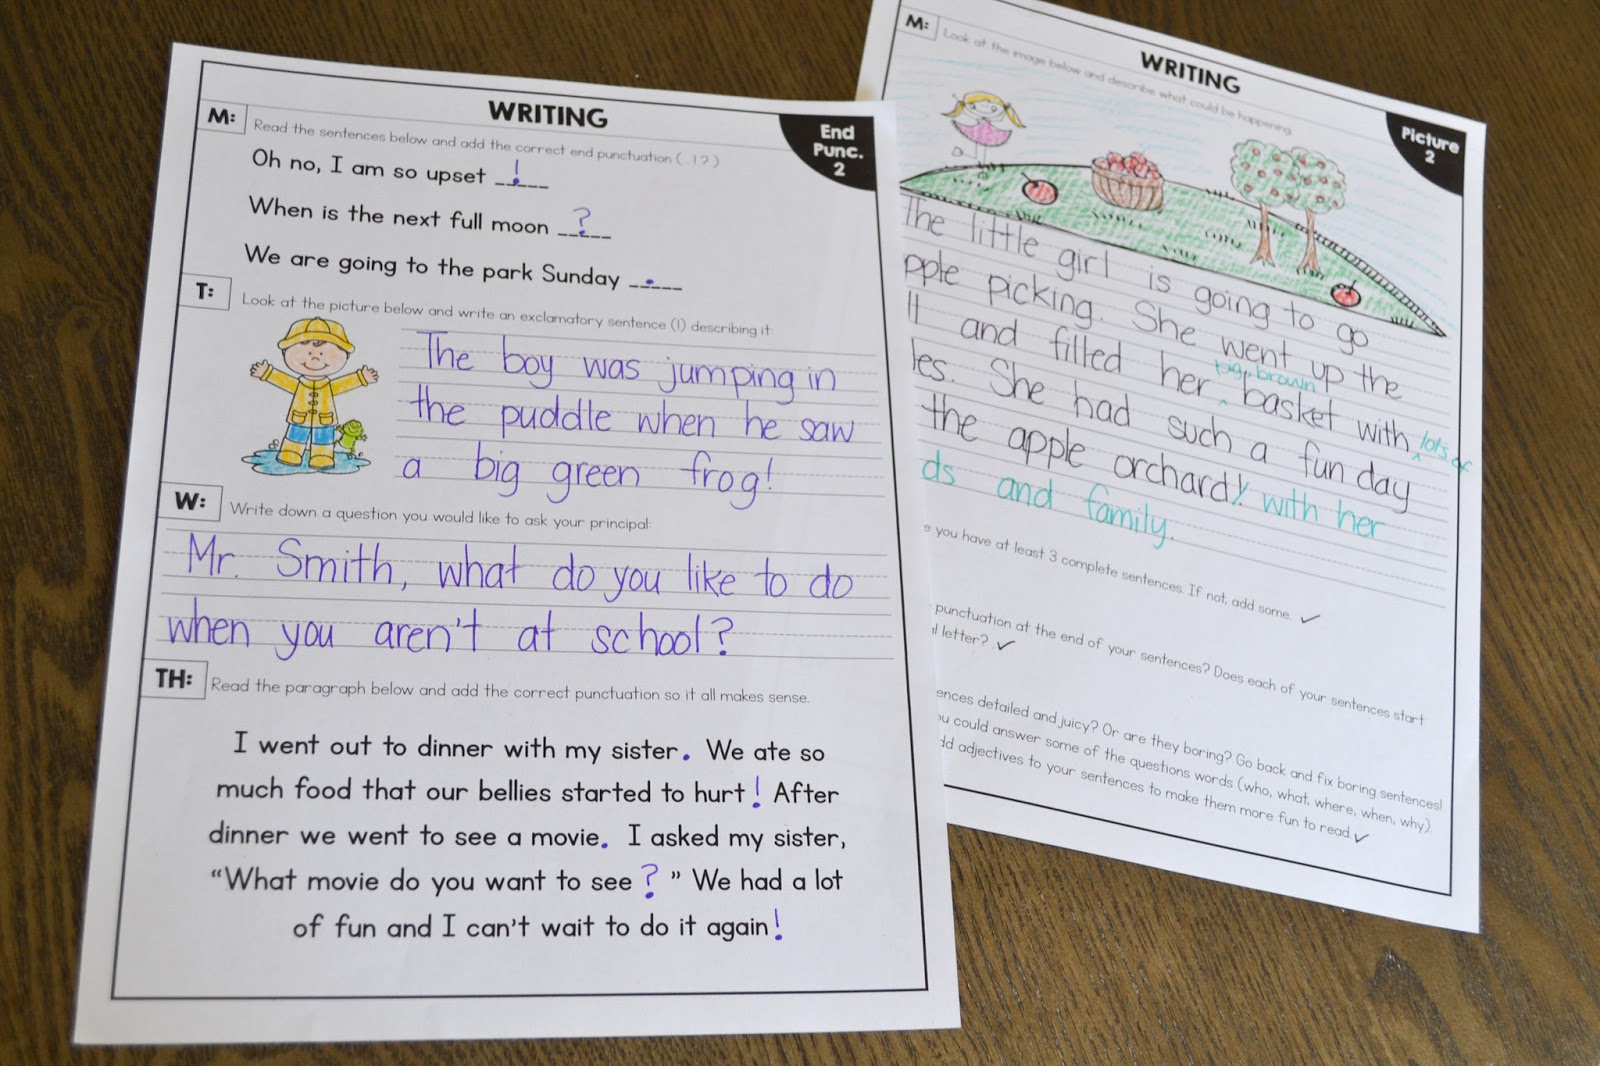 WRITING
End
Punc.
2
M: Read the sentences below and add the correct end punctuation ( . ! ? )
Oh no, I am so upset __!__
When is the next full moon __?__
We are going to the park Sunday __.__
T: Look at the picture below and write an exclamatory sentence (!) describing it:
The boy was jumping in
the puddle when he saw
a big green frog!
W: Write down a question you would like to ask your principal:
Mr. Smith, what do you like to do
when you aren't at school?
TH: Read the paragraph below and add the correct punctuation so it all makes sense.
I went out to dinner with my sister. We ate so
much food that our bellies started to hurt! After
dinner we went to see a movie. I asked my sister,
“What movie do you want to see ? ” We had a lot
of fun and I can't wait to do it again!
WRITING
Picture
2
M: Look at the image below and describe what could be happening.
The little girl is going to go
pple picking. She went up the
ll and filled her big, brown basket with lots of
les. She had such a fun day
the apple orchard! with her
ds and family.
e you have at least 3 complete sentences. If not, add some. ✓
punctuation at the end of your sentences? Does each of your sentences start
al letter? ✓
ences detailed and juicy? Or are they boring? Go back and fix boring sentences!
ou could answer some of the questions words (who, what, where, when, why).
dd adjectives to your sentences to make them more fun to read. ✓